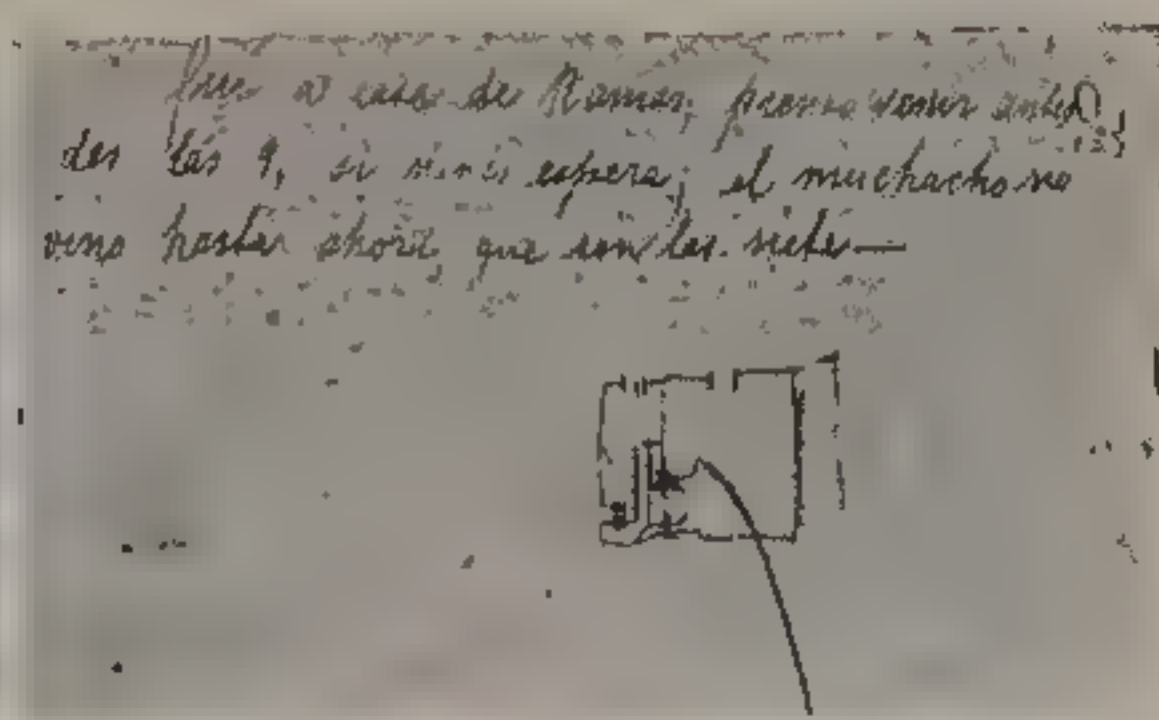 a casa de Ramon, pienso venir antes
de las 9, si venís espera, el muchacho no
vino hasta ahora que son las siete—